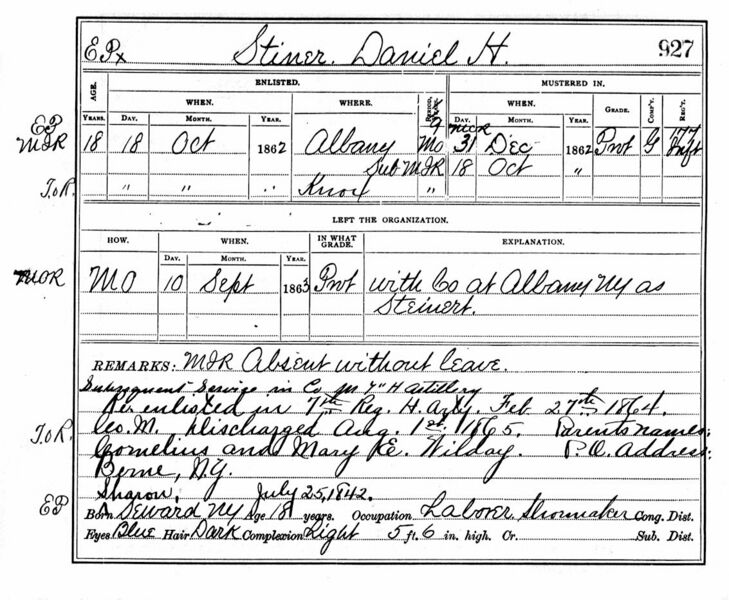 EPx Stiner. Daniel H. 927
ENLISTED. MUSTERED IN.
AGE. WHEN. WHERE. PERIOD, YEARS. WHEN. GRADE. COMP'Y. REG'T.
YEARS. DAY. MONTH. YEAR. DAY. MONTH. YEAR.
EP 9 MIR
MIR 18 18 Oct 1862 Albany Mo 31 Dec 1862 Pvt G 177 Inft
Sub MIR 18 Oct "
T.o.R. " " " Knox "
LEFT THE ORGANIZATION.
HOW. WHEN. IN WHAT GRADE. EXPLANATION.
DAY. MONTH. YEAR.
MOR MO 10 Sept 1863 Pvt with Co at Albany NY as
Steinert.
REMARKS: MIR Absent without leave.
Subsequent Service in Co M 7" H Artillery
Re enlisted in 7th Reg. H. Arty. Feb. 27th 1864.
T.o.R. Co. M. Discharged Aug. 1st. 1865. Parents names:
Cornelius and Mary E. Wilday. P.O. Address:
Berne, N.Y.
Sharon, July 25, 1842.
EP Born Seward NY Age 18 years. Occupation Laborer Shoemaker Cong. Dist.
Eyes Blue Hair Dark Complexion Light 5 ft. 6 in. high. Cr. Sub. Dist.